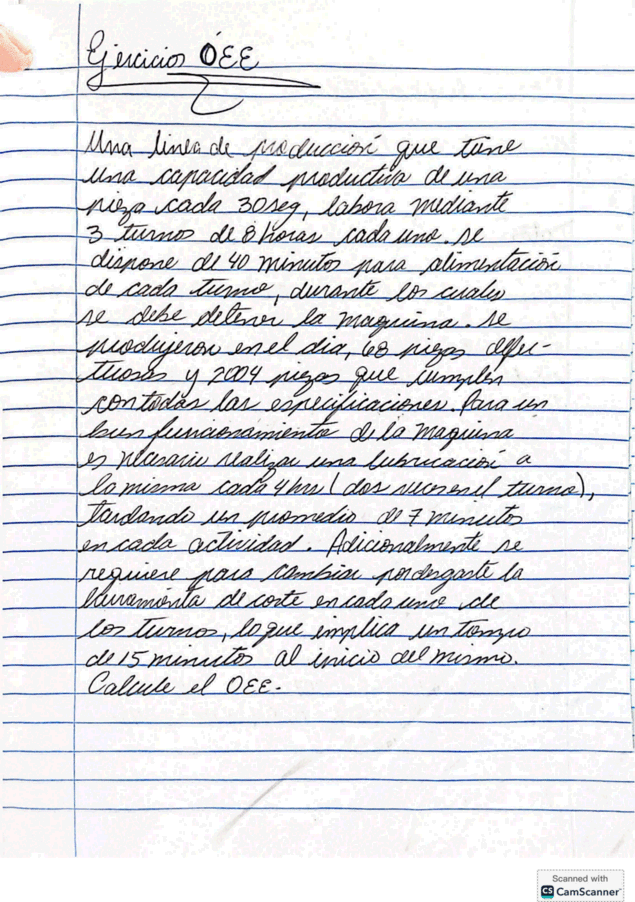 Ejercicios OEE
Una linea de producción que tiene
una capacidad productiva de una
pieza cada 30seg, labora mediante
3 turnos de 8 horas cada uno. se
dispone de 40 minutos para alimentación
de cada turno, durante los cuales
se debe detener la maquina. se
produjeron en el dia, 68 piezas defec-
tuosas y 2004 piezas que cumplen
con todas las especificaciones. Para un
buen funcionamiento de la maquina
es necesario realizar una lubricación a
la misma cada 4 hrs (dos veces en el turno),
tardando un promedio de 7 minutos
en cada actividad. Adicionalmente se
requiere para cambiar por desgaste la
herramienta de corte en cada uno de
los turnos, lo que implica un tiempo
de 15 minutos al inicio del mismo.
Calcule el OEE.
Scanned with
CS CamScanner